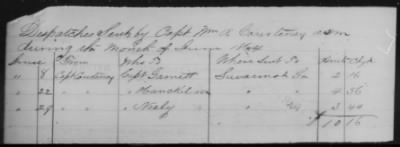 Despatches Sent by Capt Wm A Courteney a q m
during the Month of June 1864
June From Who To Where Sent To Am't Ch'gd
" 8 Capt Courteney Capt Gernett Savannah Ga 2 16
" 22 " " " " " 4 56
" 29 " " " Neely " " 3 44
$ 10 16